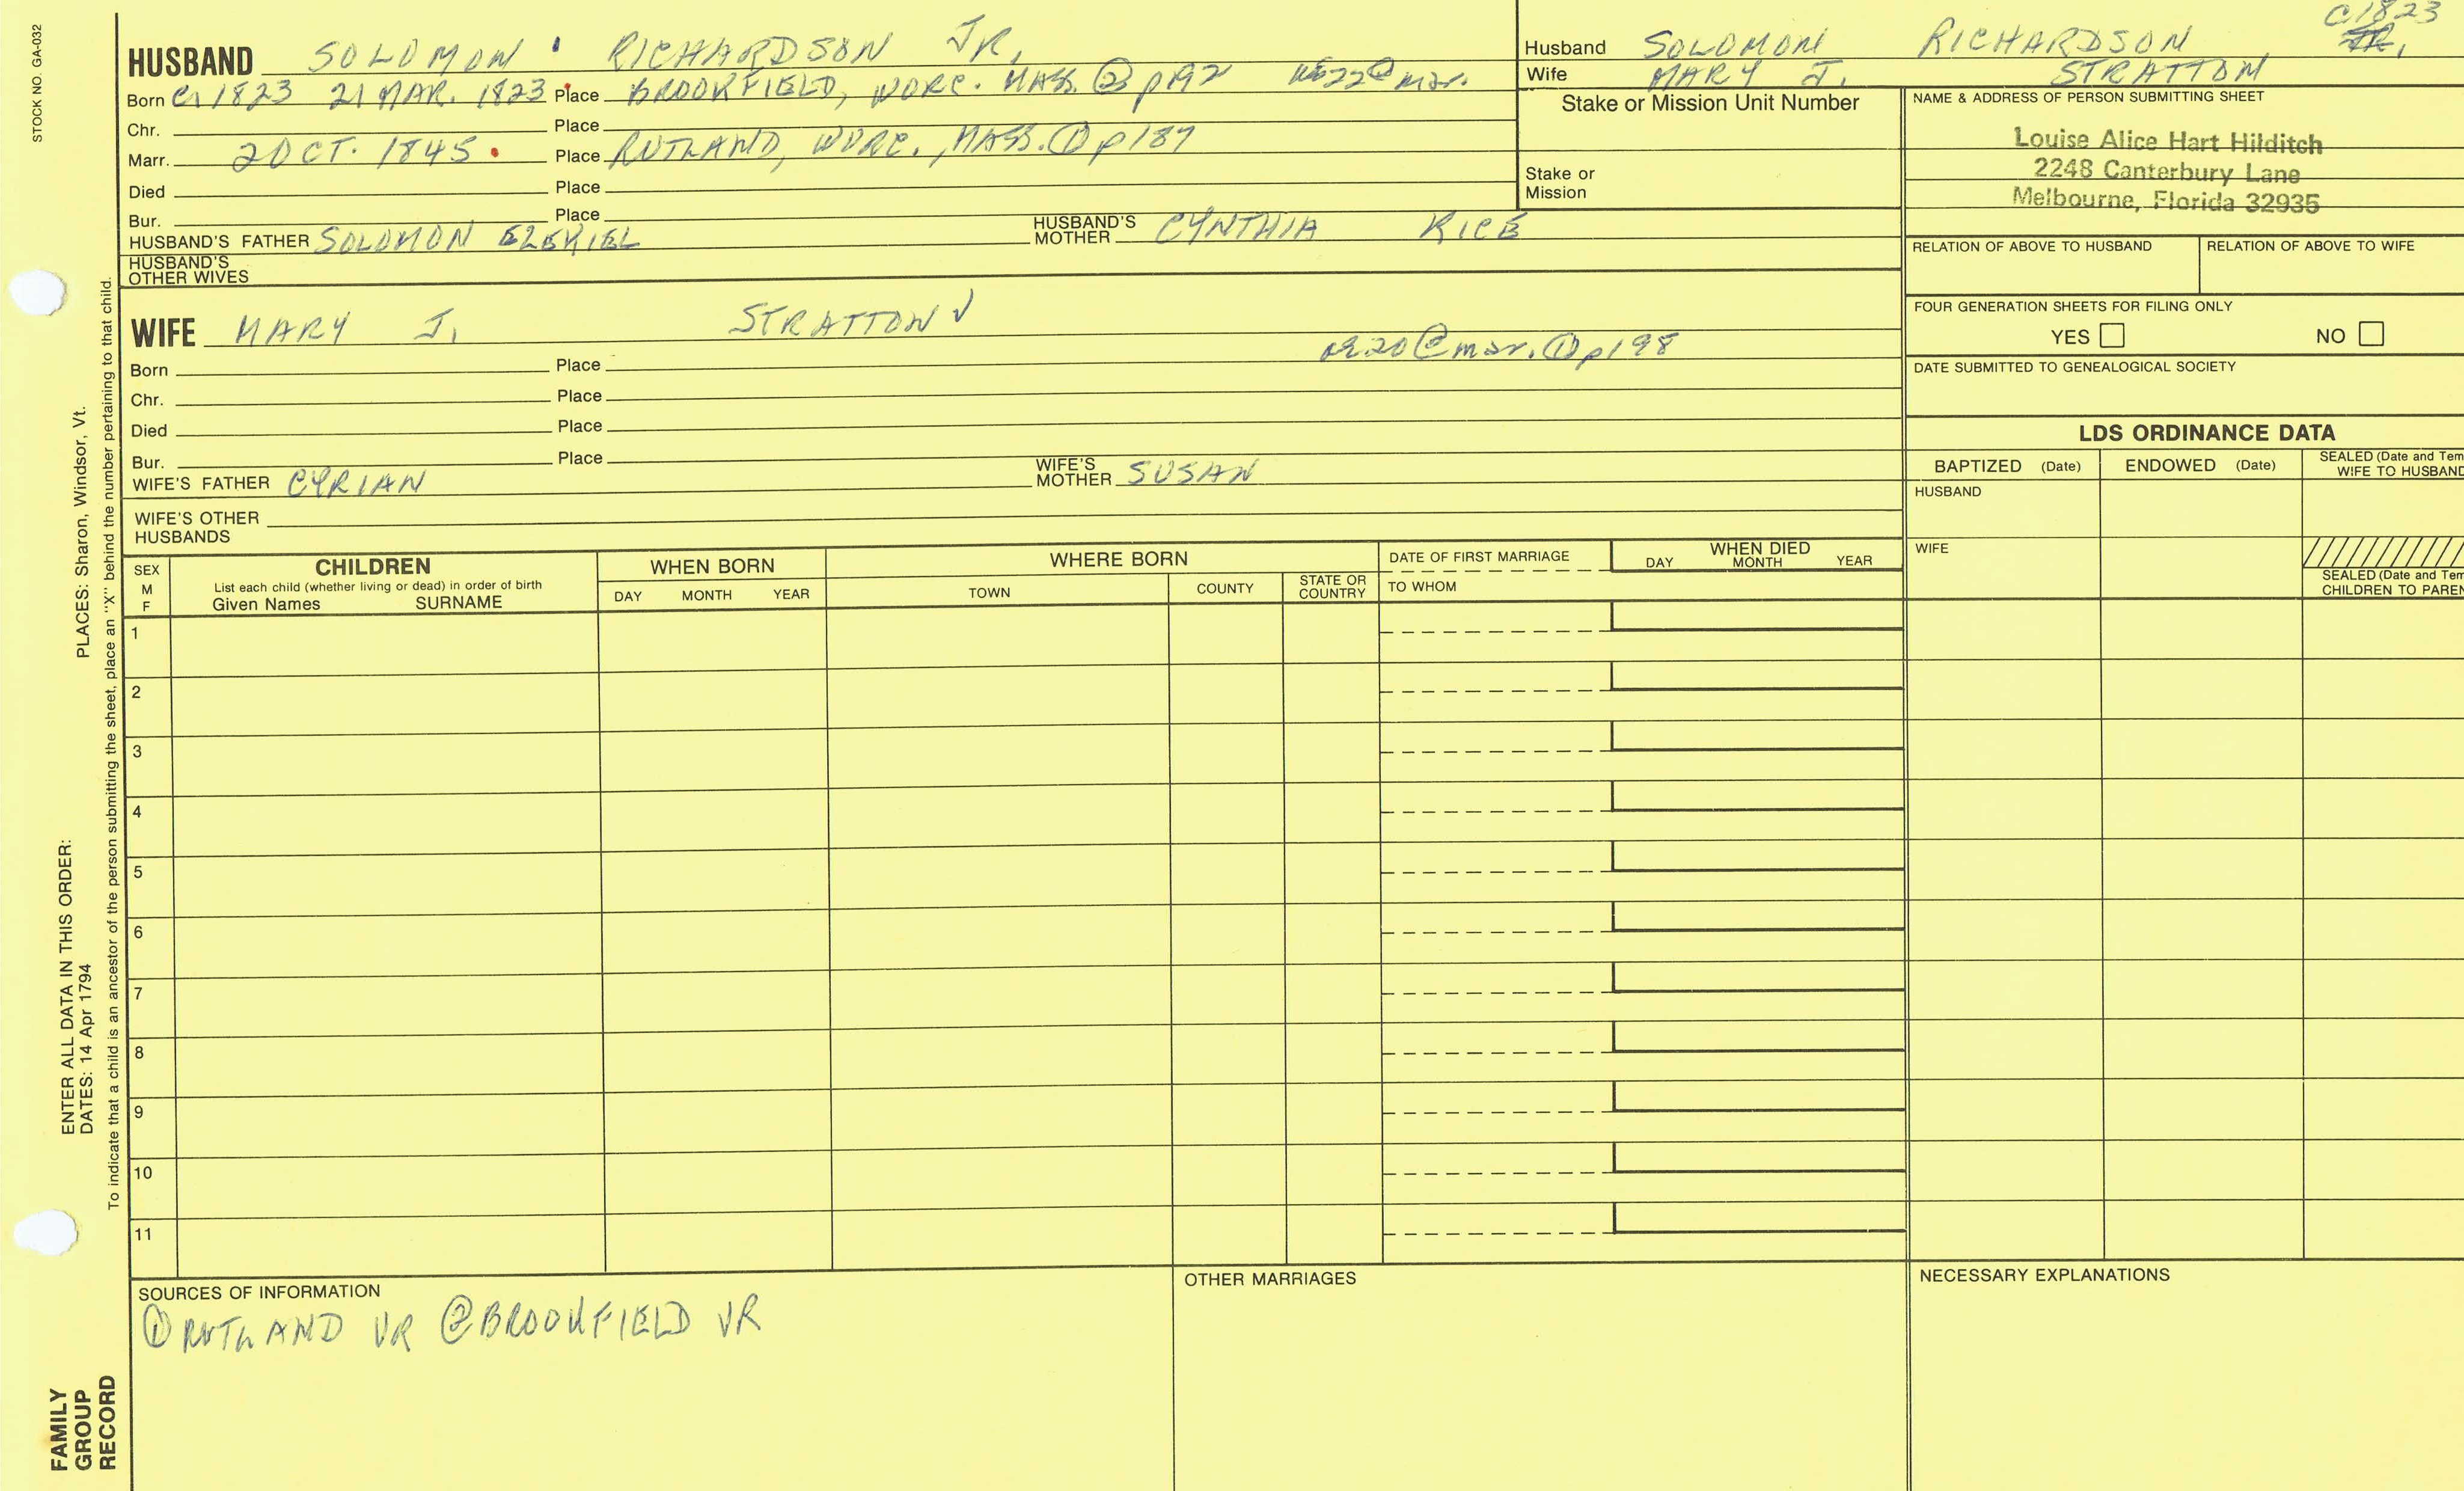 STOCK NO. GA-032
PLACES: Sharon, Windsor, Vt.
ENTER ALL DATA IN THIS ORDER:
DATES: 14 Apr 1794
To indicate that a child is an ancestor of the person submitting the sheet, place an "X" behind the number pertaining to that child.
FAMILY
GROUP
RECORD
HUSBAND SOLOMON RICHARDSON JR.
Born 1823 21 MAR. 1823 Place BROOKFIELD, WORC. MASS. ② p192 22@mar.
Chr. Place
Marr. 2 OCT. 1845 Place RUTLAND, WORC., MASS. ① p187
Died Place
Bur. Place
HUSBAND'S FATHER SOLOMON EZEKIEL HUSBAND'S MOTHER CYNTHIA RICE
HUSBAND'S
OTHER WIVES
WIFE MARY J. STRATTON √
20@mar. ① p198
Born Place
Chr. Place
Died Place
Bur. Place
WIFE'S FATHER CYRIAN WIFE'S MOTHER SUSAN
WIFE'S OTHER
HUSBANDS
C1823
Husband SOLOMON RICHARDSON, JR.
Wife MARY J. STRATTON
Stake or Mission Unit Number
Stake or
Mission
NAME & ADDRESS OF PERSON SUBMITTING SHEET
Louise Alice Hart Hilditch
2248 Canterbury Lane
Melbourne, Florida 32935
RELATION OF ABOVE TO HUSBAND RELATION OF ABOVE TO WIFE
FOUR GENERATION SHEETS FOR FILING ONLY
YES NO
DATE SUBMITTED TO GENEALOGICAL SOCIETY
LDS ORDINANCE DATA
BAPTIZED (Date) ENDOWED (Date) SEALED (Date and Tem
WIFE TO HUSBAND
HUSBAND
WIFE
SEALED (Date and Tem
CHILDREN TO PAREN
SEX
M
F
CHILDREN
List each child (whether living or dead) in order of birth
Given Names SURNAME
WHEN BORN
DAY MONTH YEAR
WHERE BORN
TOWN COUNTY STATE OR COUNTRY
DATE OF FIRST MARRIAGE
TO WHOM
WHEN DIED
DAY MONTH YEAR
1
2
3
4
5
6
7
8
9
10
11
SOURCES OF INFORMATION
① RUTLAND VR ② BROOKFIELD VR
OTHER MARRIAGES
NECESSARY EXPLANATIONS